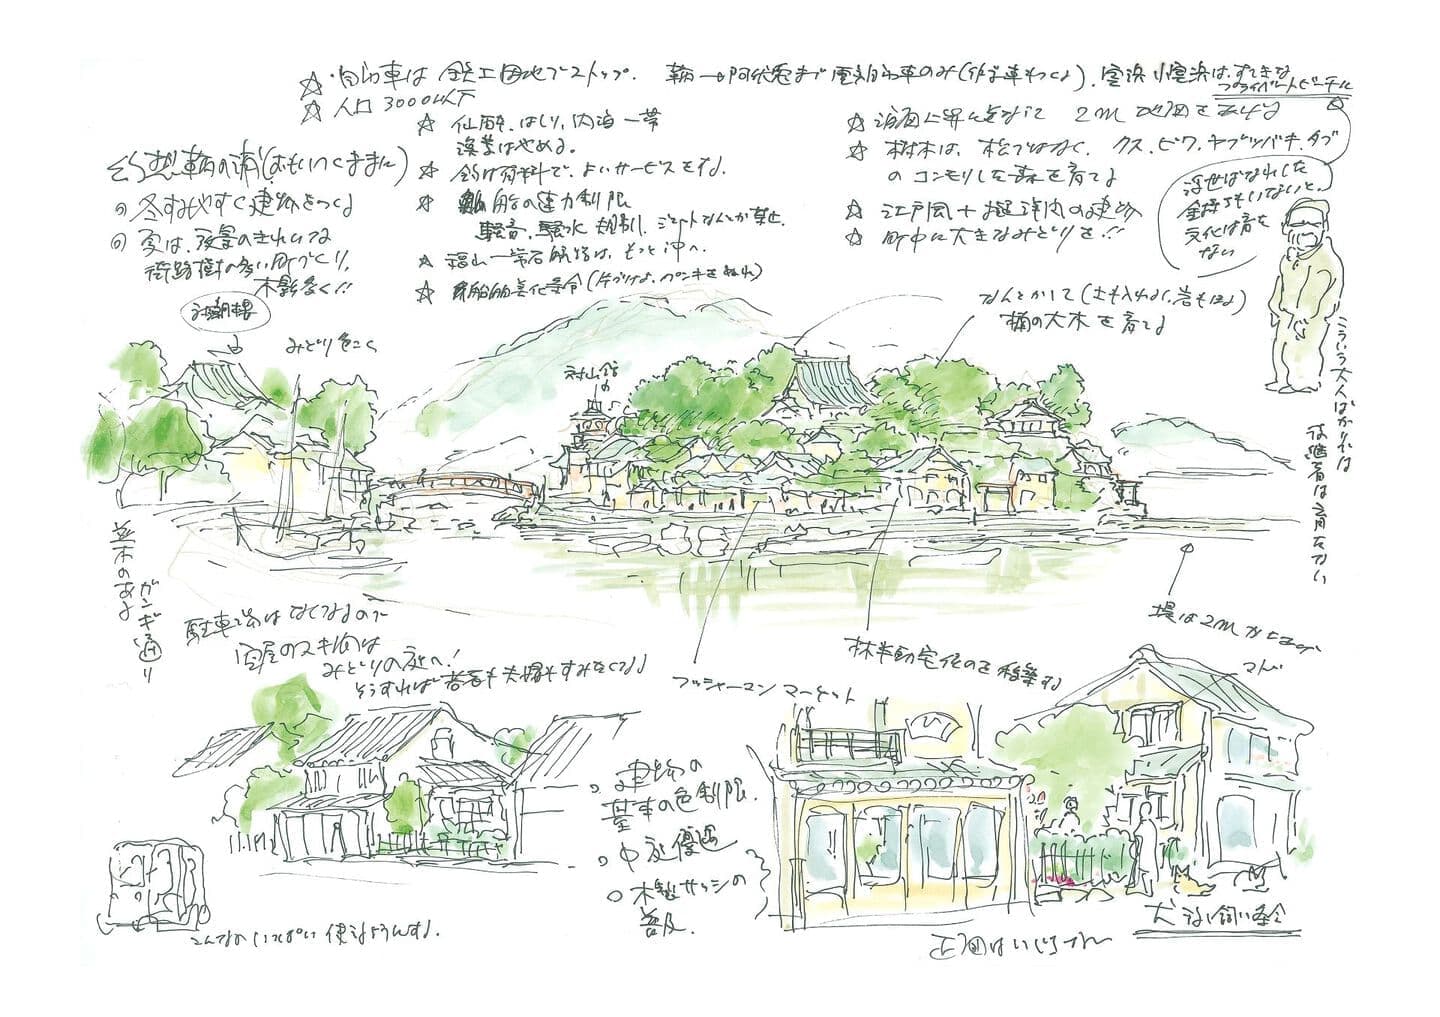 ☆ 自動車は 鉄工団地でストップ. 鞆→阿伏兎まで 電動自動車のみ(作業車もつくる). 室浜 小室浜は、すてきな
プライベートビーチに
☆ 人口 3000以下
☆ 仙酔、はしり、内海一帯
漁業はやめる。
☆ 釣は有料で、よいサービスをする.
☆ 船の速力制限
騒音、騒水 規制、ジェットなんとか禁止.
☆ 福山 航路は、もっと沖へ.
☆ 船舶美化条令(片づけよ、ペンキをぬれ)
☆ 2m 地面を上げる
☆ 樹木は、松ではなく、クス、ビワ、ヤブツバキ、タブ
の コンモリした森を育てる
☆ 江戸風+擬洋風の建物
☆ 町中に大きなみどりを!!
幻想 鞆の浦(おもいつくままに)
冬すみやすく建物をつくる
夏は、夜景のきれいな
街路樹の多い町づくり.
木影多く!!
浮世ばなれした
金持ちもいないと、
文化は育た
ない
こういう大人ばかりでは
後継者は育たない
なんとかして(土も入れよ、岩もほる)
楠の大木を育てる
みどり色こく
並木のある
ガンギ通り
駐車場はなくなるので
のスキ間は
みどりの庭へ!
そうすれば 若者も夫婦もすみたくなる
フィッシャーマン マーケット
移築する
堤は2m
マド
建物の
基本の色制限.
中庭優遇
木製サッシの
普及.
こんなの いっぱい 使うようにする.
正面はいじらずに
犬 ねこ 飼い条令